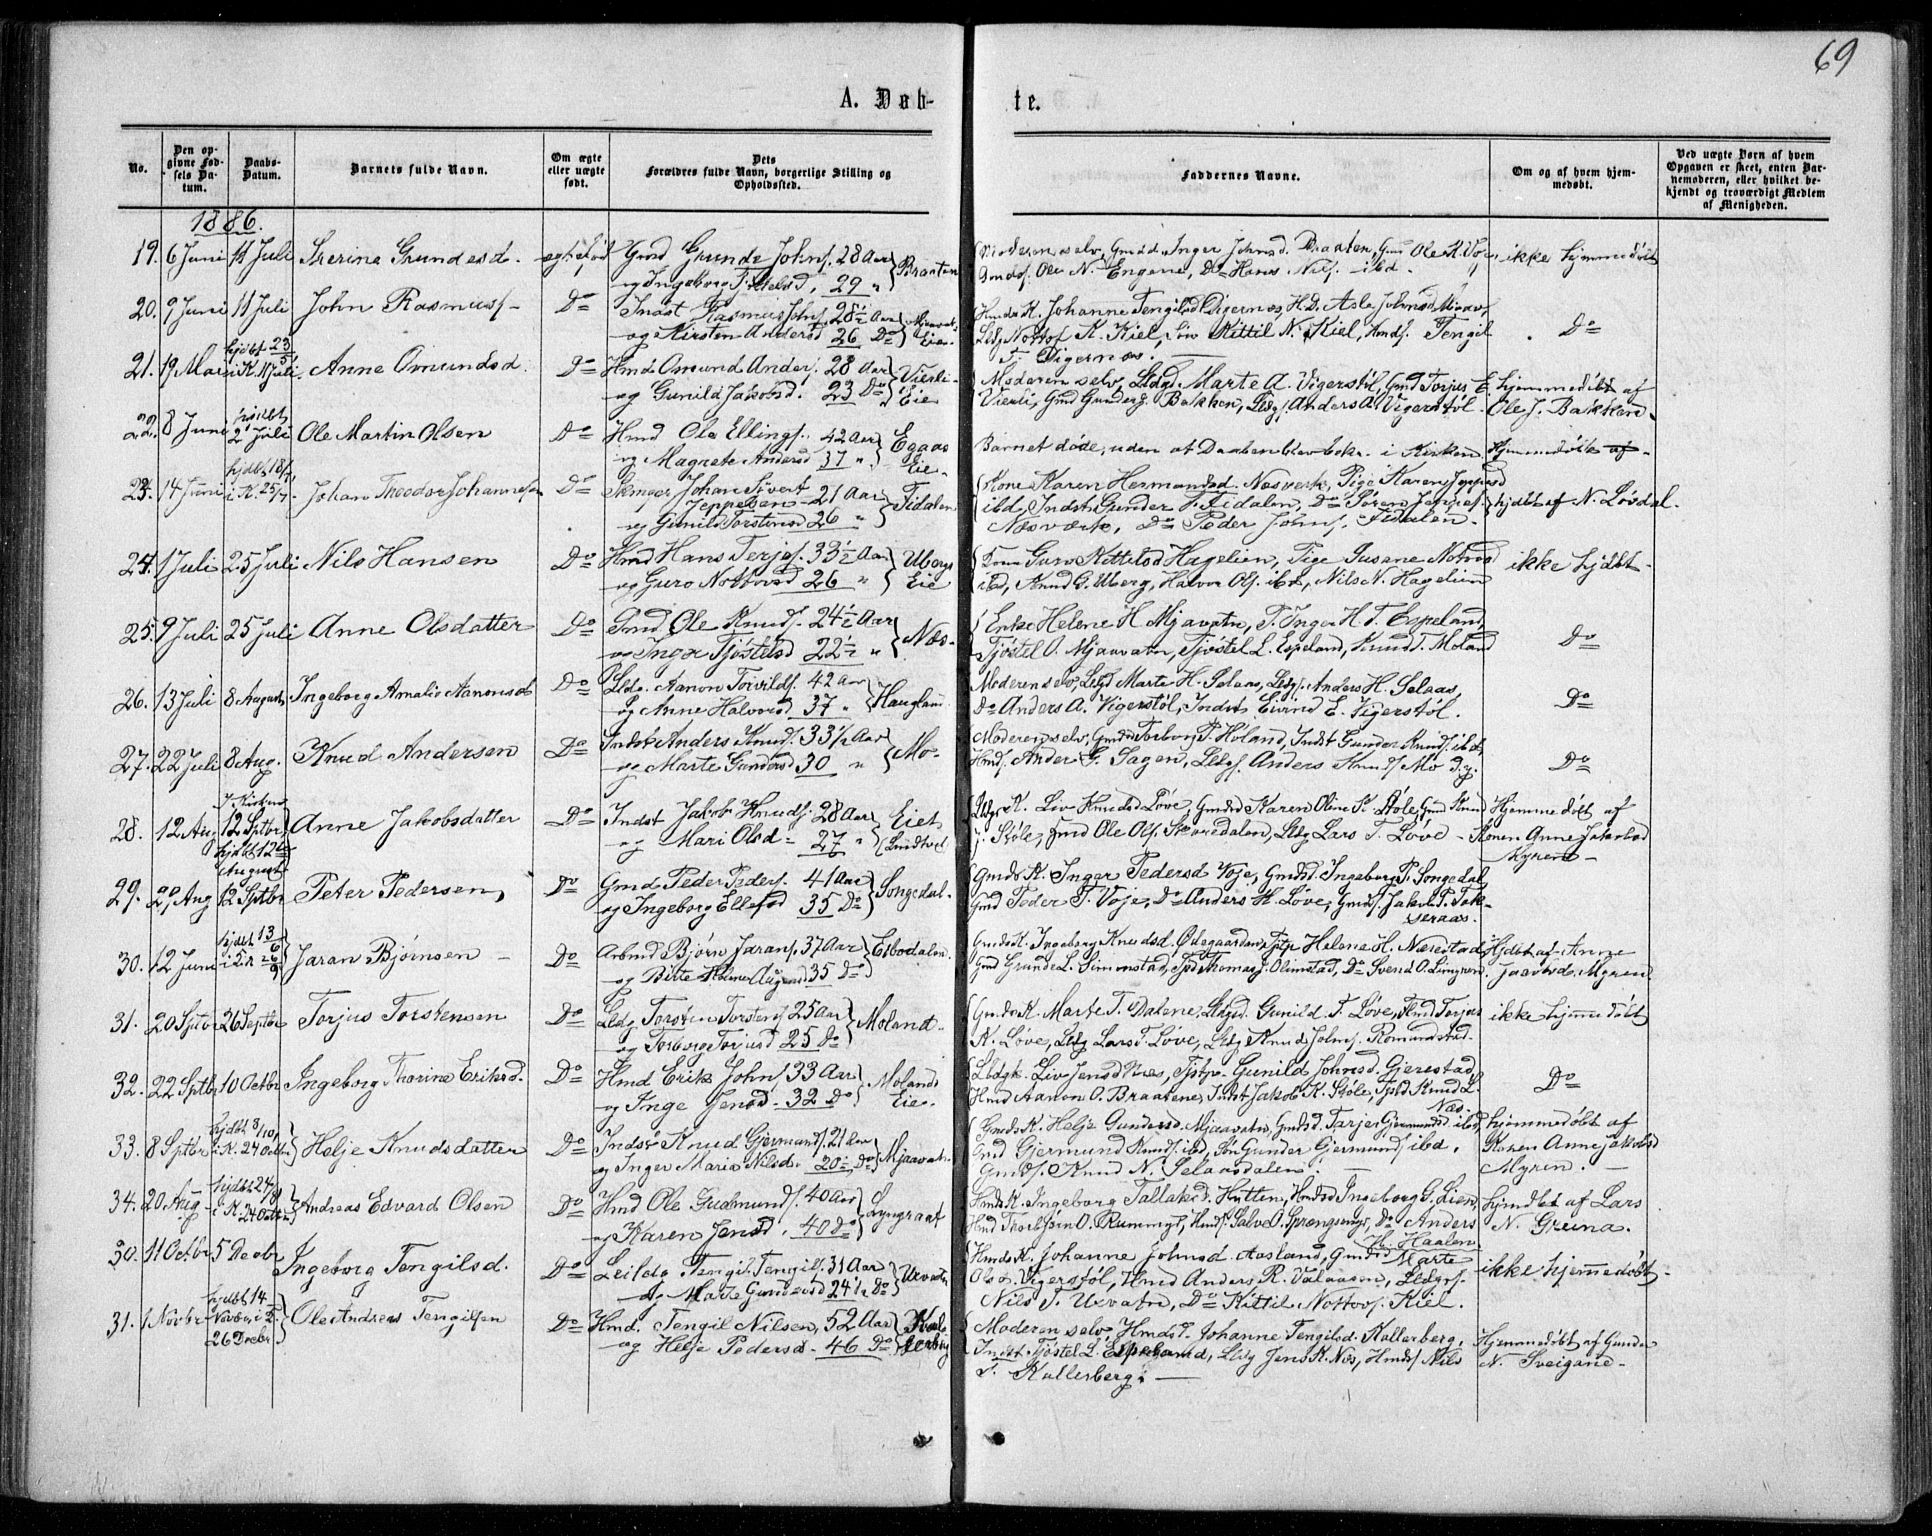 69
A. Døb-
te.
No.
Den op-
givne Fød-
sels Da-
tum.
Daabs-
Datum.
Barnets fulde Navn.
Om ægte
eller uægte
født.
Dets
Forældres fulde Navn, borgerlige Stilling og
Opholdssted.
Faddernes Navne.
Om og af hvem hjem-
medøbt.
Ved uægte Børn af hvem
Opgaven er skeet, enten Bar-
nemoderen, eller hvilket be-
kjendt og troværdigt Medlem
af Menigheden.
1886.
19. 6 Juni 11 Juli Grundesd. ægtefød Gmd Grunde Johns. 28 Aar
og Ingeborg 29 "
Braaten
Moderen selv, Gmdd. Inger Johnsd. Braaten, Gmd Ole K. Voje,
Gmds. Ole N. Engene, Do Hans Nils. ibd.
ikke hjemmedøbt
20. 9 Juni 11 Juli John Rasmuss. Do Indst Rasmus Johns. 28½ Aar
og Kirsten Andersd 26 Do
Eie
Hmds K. Johanne Tengilsd Digernæs, H.D. Asle Johnsd
Ldg Nottof K. Kiel, Søn Kittil N. Kiel, Hmds. Tengil
T. Digernæs.
Do
21. 19 Mai hjdbt 23/5 i K. 11 Juli Anne Omundsd. Do Hmd Omund Anders. 28 Aar
og Gunild Jakobsd. 23 Do
Vierli-
Eie
Moderen selv, Ldgd. Marte A. Vigerstøl, Gmd Torjus E.
Vierli, Gmd Gunder J. Bakken, Ldgs. Anders A. Vigerstøl.
hjemmedøbt af
Ole J. Bakken.
22. 8 Juni hjdbt 2 Juli Ole Martin Olsen Do Hmd Ole Ellings. 42 Aar
og Magnete Andersd 37 "
Egaas
Eie
Barnet døde, uden at Daaben blev bekr. i Kirken
Hjemmedøbt af
23. 14 Juni hjdbt 18/7 i K. 25/7 Johan Theodor Johannesen Do Johan Sivert
Jeppesen 21 Aar
og Gunild Torstensd 26 "
Fidalen
Kone Karen Hermansd. Næsverk, Pige Karen Jeppesd
ibd, Indst. Gunder T. Fidalen, Do Søren Jeppes.
Næsværk, Do Peder Johns. Fidalen.
hjdbt af N. Løvdal.
24. 1 Juli 25 Juli Nils Hansen Do Hmd Hans Terjes. 33½ Aar
og Guro Nottovsd 26 "
Ubergs
Eie
Kone Guro Kittelsd Hagelien, Pige Susane Nottovsd
ibd, Knud G. Uberg, Halvor Ols. ibd, Nils N. Hagelien
ikke hjdbt
25. 9 Juli 25 Juli Anne Olsdatter Do Gmd. Ole Knuds. 24½ Aar
og Inger Tjøstelsd 22½ "
Næs.
Enke Helene H. Mjavatn, P. Inger H. T. Espeland,
Tjøstel O. Mjaavatn, Tjøstel L. Espeland, Knud T. Moland
Do
26. 13 Juli 8 August Ingeborg Amalie Aanonsd Do Ldg. Aanon Torvilds. 42 Aar
og Anne Halvorsd 37 "
Haugland
Moderen selv, Ldgd Marte H. Selaas, Ldgs. Anders H. Selaas,
Do Anders A. Vigerstøl, Indst Eivind E. Vigerstøl.
Do
27. 22 Juli 8 Aug. Knud Andersen Do Indst Anders Knuds. 33½ Aar
og Marte Gundersd 30 "
Mo-
Moderen selv, Gmdsd Torborg P. Høland, Indst Gunder Knuds. ibd,
Hmds. Ander G. Sagen, Ldgs. Anders Knuds Mo d.y.
Do
28. 12 Aug I Kirken 12 Sptbr, hjdbt 12te August Anne Jakobsdatter Do Indst Jakob Knuds. 28 Aar
og Mari Olsd 27 "
Eiet
Ldgs K. Liv Knudsd Løve, Gmdsd Karen Oline K. Støle, Gmd Knud
J. Støle, Gmd Ole Ols. Skoredalen, Ldg Lars T. Løve
Hjemmedøbt af
Konen Anne Jakobsd
Myren
29. 29 Aug 12 Sptbr Peter Pedersen, Do Gmd Peder Peders. 41 Aar
og Ingeborg Ellefsd 35 Do
Songedal
Gmds K. Inger Pedersd Voje, Gmdsd. Ingeborg P. Songedal,
Gmd Peder T. Voje, Do Anders H. Løve, Gmds. Jakob P. Tak-
seraas.
30. 12 Juni hjdbt 13/6 i K 26/9 Jaran Bjørnsen Do Arbmd Bjørn Jarans. 37 Aar
og Birte 35 Do
Esbodalen
Gmds K. Ingeborg Knudsd. Ødegaarden, Tjp Helene H. Nærestad,
Gmd Grunde L. Simonstad, Tjd Thomas J. Olimstad, Do Svend O. Limyren
Hjdbt af Anne
Jacobsd. Myren.
31. 20 Sptbr 26 Septbr Torjus Torstensen Do Ldg Torsten Torstens. 25 Aar
og Torborg Torjusd 25 Do
Moland
Gmds K. Marte T. Dalene, Ldgd. Gunild T. Løve, Hmd Torjus
K. Løve, Ldg Lars T. Løve, Ldg Knud Johns. Romundstad.
ikke hjemmedøbt
32. 22 Sptbr 10 Octbr Ingeborg Thorine Eriksd. Do Hmd Erik Johns 33 Aar
og Inge Jensd. 32 Do
Molands
Eie.
Ldgk. Liv Jensd Næs, Tjstp. Gunild Johnsd. Gjerestad,
Hmd Aanon O. Braatene, Indst Jakob K. Støle, Tjd Knud L.
Næs.
Do
33. 8 Sptbr hjdbt 3/10, i K. 24 Octbr Helje Knudsdatter Do Indst Knud Gjermunds. 21 Aar
og Inger Maria Nilsd. 20½ Do
Mjaavatn
Gmds K. Helje Gundersd. Mjaavatn, Gmdsd. Tarjer Gjermundsd ibd,
Gmd Gjermund Knuds. ibd, Søn Gunder Gjermunds ibd,
Gmds. Knud N. Selaasdalen.
hjemmedøbt af
Konen Anne Jakobsd
Myren.
34. 20 Aug hjdbt 24/8 i K. 24 Octbr Andreas Edvard Olsen Do Hmd Ole Gudmunds. 40 Aar
og Karen Jensd. 40 Do
Lyngraat
Hmds K. Ingeborg Tallaksd. Hytten, Hmdsd Ingeborg G. Lien,
Hmd Thorbjørn O. Rummyr, Hmds. Salve O. Sprængsmyr, Do Anders
H. Haalen
hjmdbt af Lars
N. Greina.
30. 11 Octbr 5 Decbr Ingeborg Tengilsd. Do Leilds. Tengil Tengils. 31 Aar
og Marte Gundersd 24½ Do
Uevatn
Hmds K. Johanne Johnsd. Aasland, Gmdsd Marte
Olsd. Vigerstøl, Hmd Anders R. Valaasen, Ldgs.
Nils T. Uevatn, Do Kittil Nottovs. Kiel.
ikke hjemmedøbt.
31. 1 Novbr hjdbt 14 Novbr, i K. 26 Decbr Ole Andreas Tengilsen Do Hmd. Tengil Nilsen, 52 Aar
og Helje Pedersd. 46 Do
Moderen selv, Hmdsd. Johanne Tengilsd. Kallerberg,
Indst Tjøstel L. Espeland, Ldg Jens K. Næs, Hmds Nils
T. Kallerberg.
Hjemmedøbt af Gunder
N. Sveigane